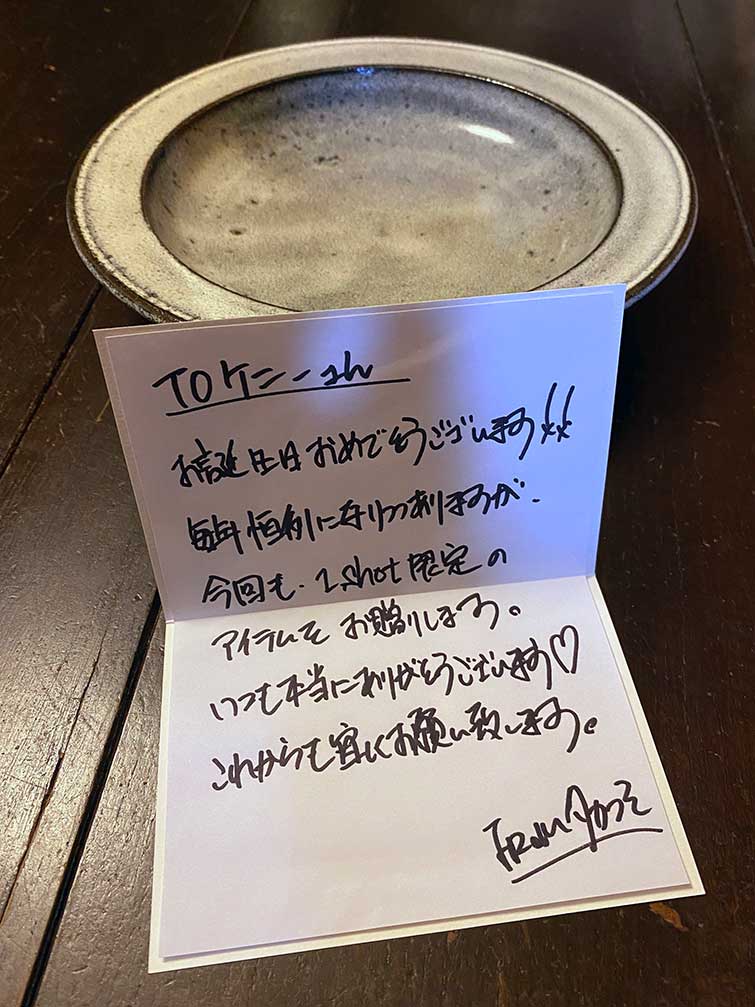 TO ケニーさん
お誕生日おめでとうございます!!
毎年恒例になりつつありますが、
今回も、1shot限定の
アイテムをお贈りします。
いつも本当にありがとうございます♡
これからも宜しくお願い致します。
FROM